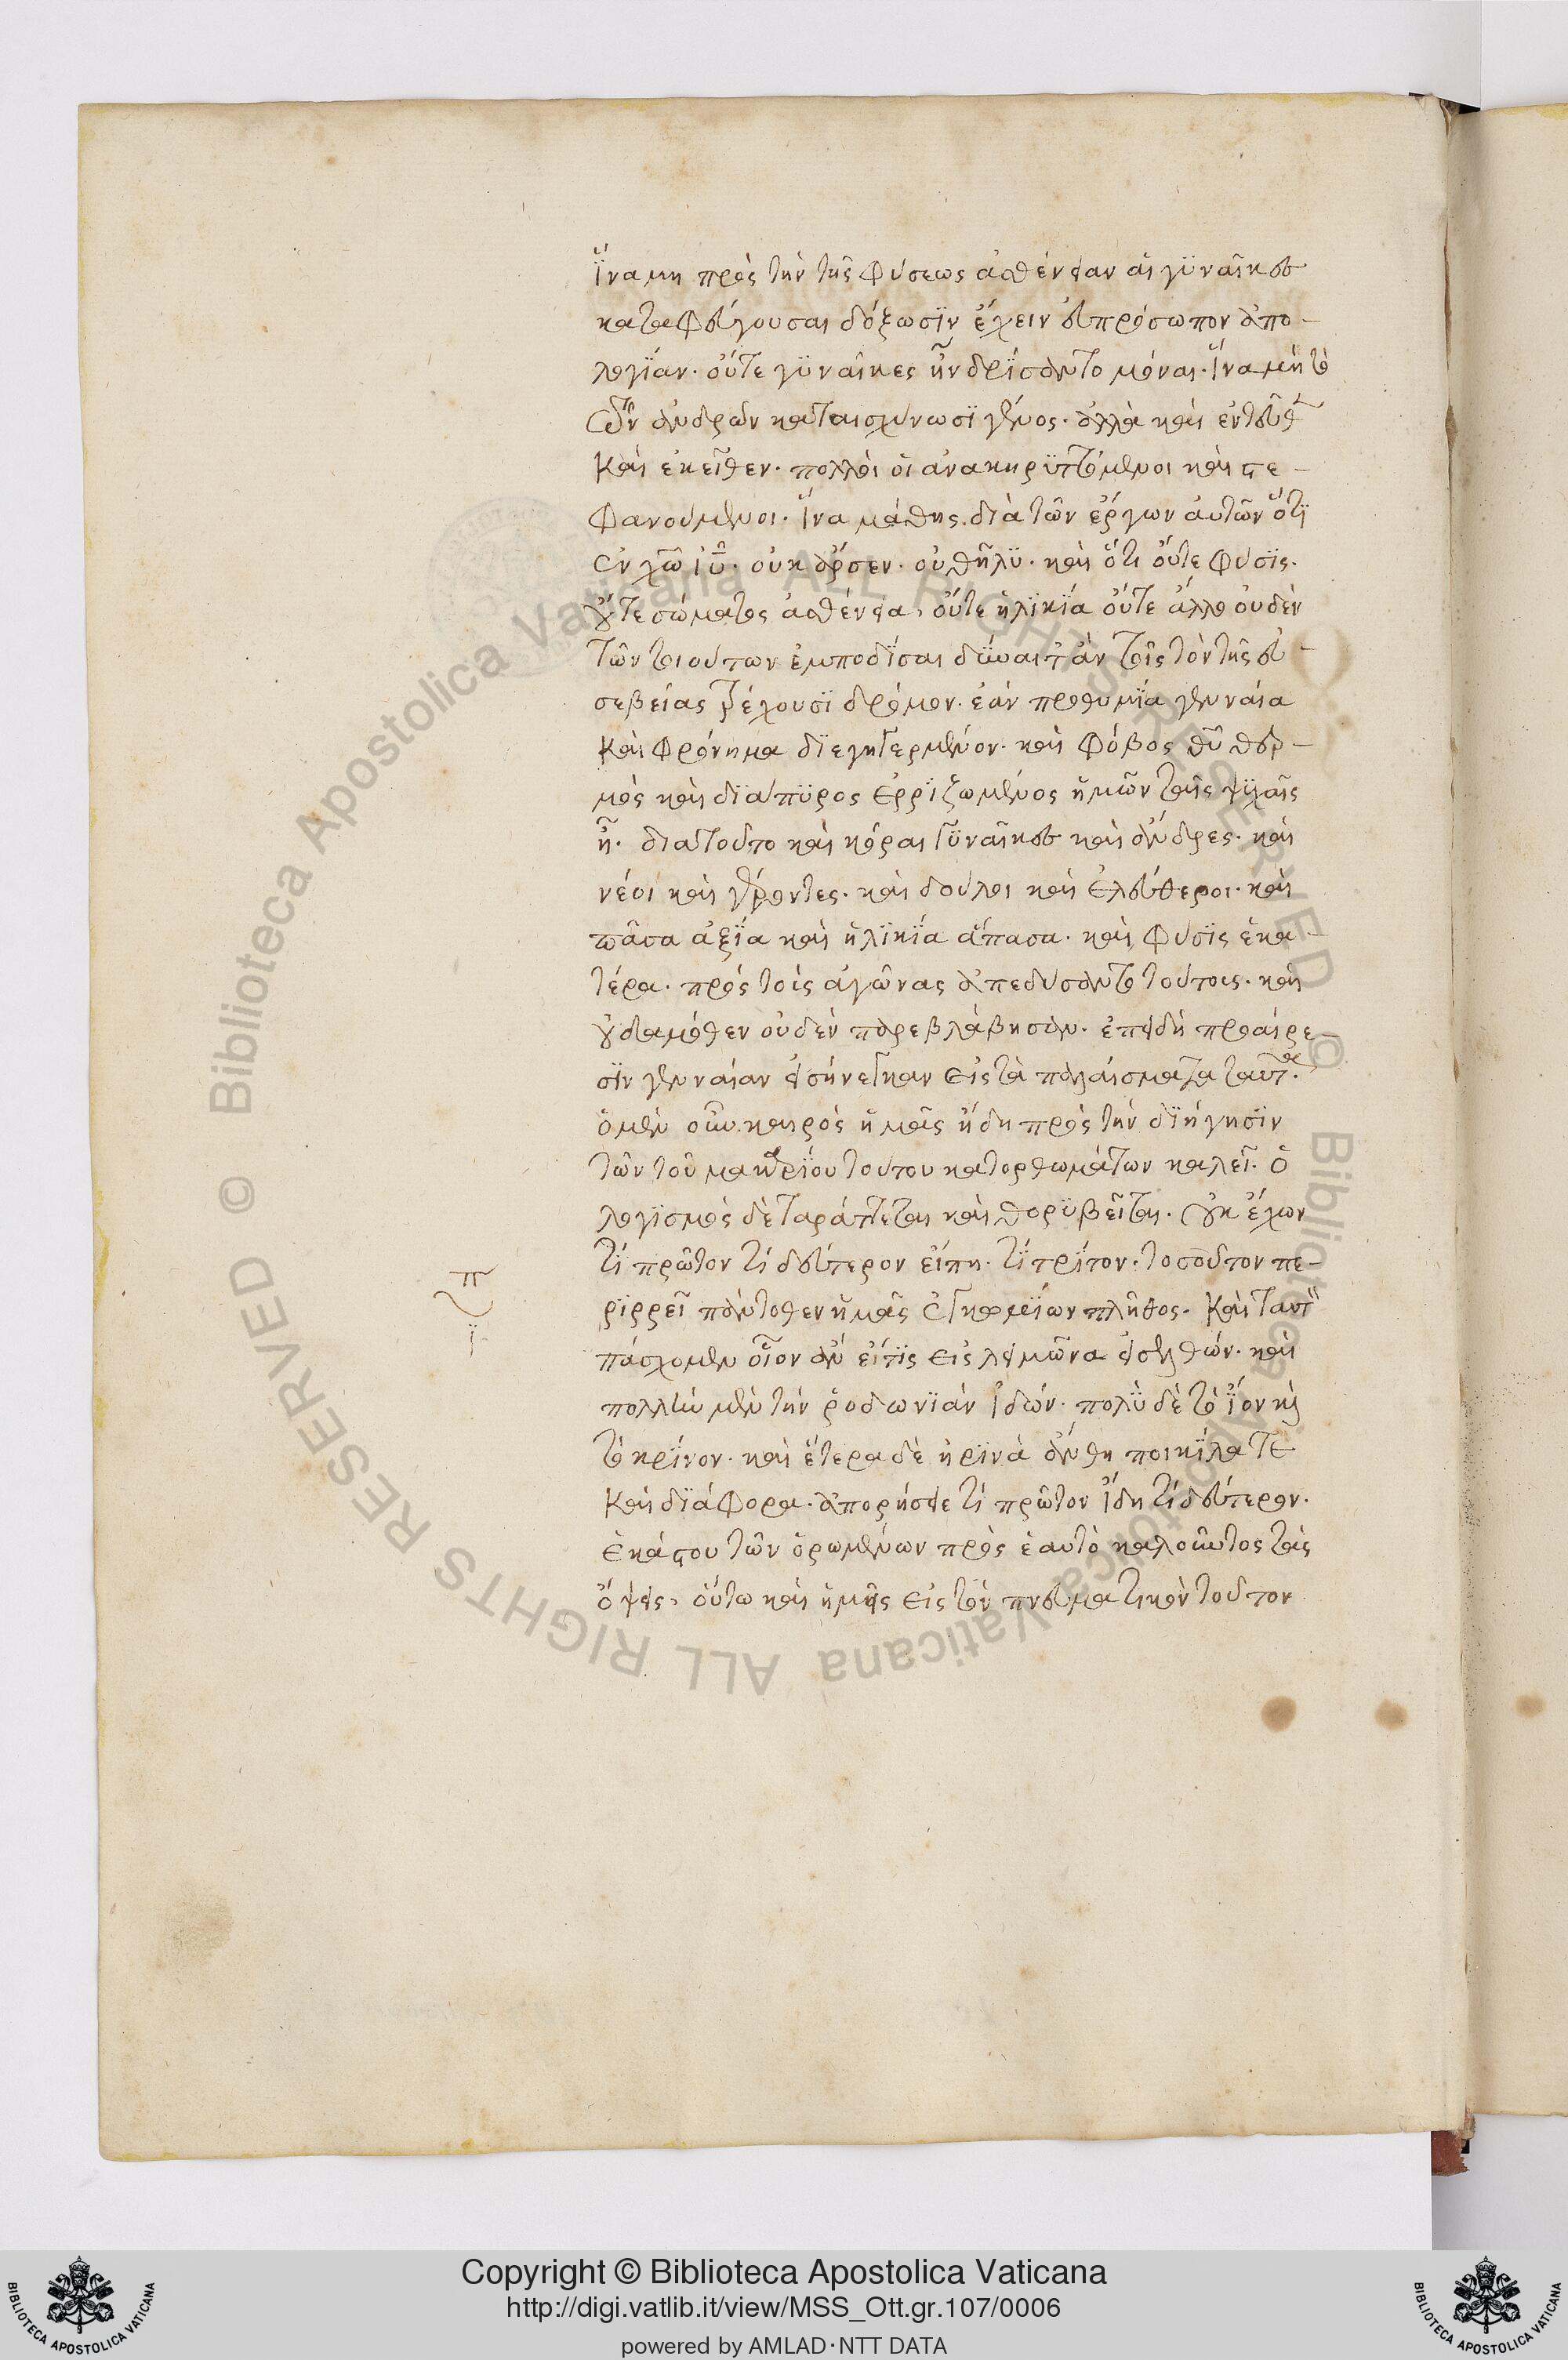 ἵνα μη πρὸς τὴν τῆς φύσεως ἀσθένειαν ἁι γϋναῖκες
καταφεύγουσαι δόξωσϊν ἔχειν ἐυπρόσωπον ἀπο-
λογϊαν· οὔτε γϋναῖκες ἠνδρϊσαντο μόναι· ἵνα μὴ τὸ
τῶν ἀνδρῶν καταισχύνωσϊ γένος· ἀλλὰ καὶ ἐντεῦθ
καὶ ἐκεῖθεν· πολλοὶ ὁι ἀνακηρϋττόμενοι καὶ στε-
φανούμενοι· ἵνα μάθης διὰ τῶν ἔργων ἀυτῶν ὅτϊ
ἐν χῶ ιῦ· οὐκ ἄρσεν· οὐ θῆλϋ· καὶ ὅτι οὔτε φύσϊς·
οὔτε σώματος ἀσθένεια, οὔτε ἡλϊκϊα οὔτε ἄλλο οὐδὲν
τῶν τοιούτων ἐμποδϊσαι δύναιτ ἂν τοῖς τὸν τῆς ἐυ-
σεβείας τρέχουσϊ δρόμον· ἐὰν προθυμϊα γενναία
καὶ φρόνημα δϊεγηγερμένον· καὶ φόβος θῦ θερ-
μὸς καὶ δϊάπϋρος ἐρρϊζωμένος ἡμῶν ταῖς ψϋχαῖς
ῇ· διατοῦτο καὶ κόραι γϋναῖκες καὶ ἄνδρες· καὶ
νέοι καὶ γέροντες· καὶ δοῦλοι καὶ ἐλεύθεροι· καὶ
πᾶσα ἀξϊα καὶ ἡλϊκϊα ἅπασα· καὶ φύσϊς ἑκα-
τέρα· πρὸς τοὶς ἀγῶνας ἀπεδύσαντο τούτοις· καὶ
οὐδαμόθεν οὐδὲν παρεβλάβησαν· ἐπειδὴ προαίρε-
σϊν γενναίαν εἰσήνεγκαν εἰς τὰ παλαίσματα ταῦτα·
ὁ μὲν οὖν καιρὸς ἡμᾶς ἤδη πρὸς τὴν δϊήγησϊν
τῶν τοῦ μακαρϊου τούτου κατορθωμάτων καλεῖ· ὁ
λογϊσμὸς δὲ ταράττεται καὶ θορϋβεῖται· οὐκ ἔχων
τί πρῶτον τί δεύτερον εἴπη· τϊ τρϊτον· τοσοῦτον πε-
ρϊρρεῖ πάντοθεν ἡμᾶς ἐγκωμϊων πλῆθος· καὶ ταυτὸν
πάσχομεν οἷον ἂν εἴτϊς εἰς λειμῶνα εἰσελθών· καὶ
πολλὴν μὲν τὴν ῥοδωνϊὰν ἰδών· πολὺ δὲ τὸ ἴον καὶ
τὸ κρϊνον· καὶ ἕτερα δὲ ἠρϊνὰ ἄνθη ποικϊλα τε
καὶ δϊάφορα· ἀπορήσειε τί πρῶτον ἴδη τί δεύτερον·
ἑκάστου τῶν ὁρωμένων πρὸς ἑαυτὸ καλοῦντος τὰς
ὄψεις· οὕτω καὶ ἡμεῖς εἰς τὸν πνευματικὸν τοῦτον
Copyright © Biblioteca Apostolica Vaticana
http://digi.vatlib.it/view/MSS_Ott.gr.107/0006
powered by AMLAD·NTT DATA